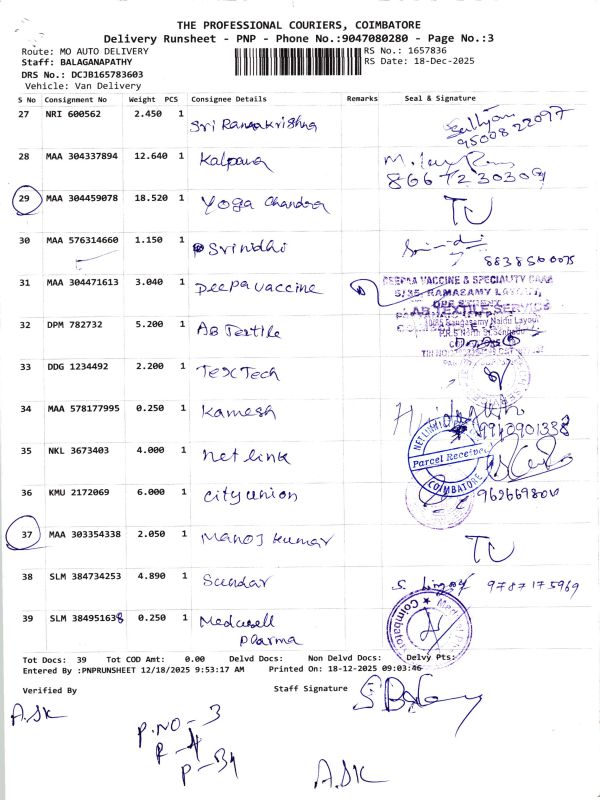 THE PROFESSIONAL COURIERS, COIMBATORE
Delivery Runsheet - PNP - Phone No.:9047080280 - Page No.:3
Route: MO AUTO DELIVERY RS No.: 1657836
Staff: BALAGANAPATHY RS Date: 18-Dec-2025
DRS No.: DCJB165783603
Vehicle: Van Delivery
S No Consignment No Weight PCS Consignee Details Remarks Seal & Signature
27 NRI 600562 2.450 1 Sri Ramakrishna
9500822097
28 MAA 304337894 12.640 1 Kalpana
29 MAA 304459078 18.520 1 Yoga Chandra
30 MAA 576314660 1.150 1 Srinidhi
31 MAA 304471613 3.040 1 Deepa vaccine DEEPAA VACCINE & SPECIALITY CARE
5/35, RAMASAMY LAYOUT,
32 DPM 782732 5.200 1 AB Textile AB TEXTILE SERVICE
33 DDG 1234492 2.200 1 Tex Tech
34 MAA 578177995 0.250 1 Kamesh
35 NKL 3673403 4.000 1 net link NETLINK Parcel Received COIMBATORE
36 KMU 2172069 6.000 1 city union
37 MAA 303354338 2.050 1 Manoj kumar
38 SLM 384734253 4.890 1 Sundar 9787175969
39 SLM 384951638 0.250 1 Medusell
pharma Coimbatore
Tot Docs: 39 Tot COD Amt: 0.00 Delvd Docs: Non Delvd Docs: Delvy Pts:
Entered By :PNPRUNSHEET 12/18/2025 9:53:17 AM Printed On: 18-12-2025 09:03:46
Verified By Staff Signature
A.SK
P.NO - 3
A.SK